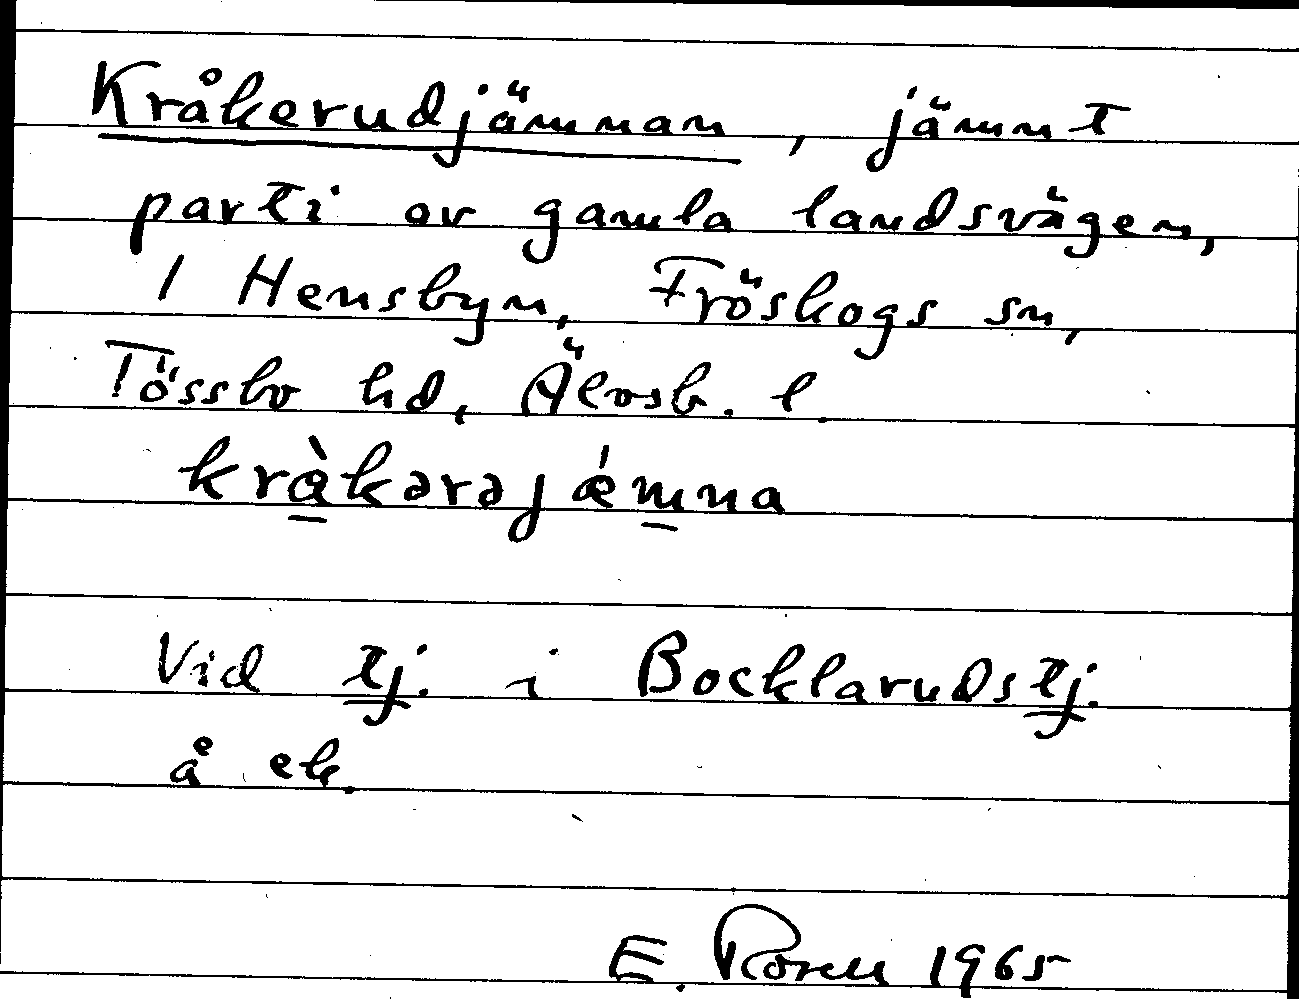 Kråkerudjämnan, jämnt
parti av gamla landsvägen,
1 Hensbyn, Fröskogs sn,
Tössbo hd, Älvsb. l.
kràkərəjǽmna
Vid tj. i Bocklarudstj.
å ek.
E. Rosell 1965